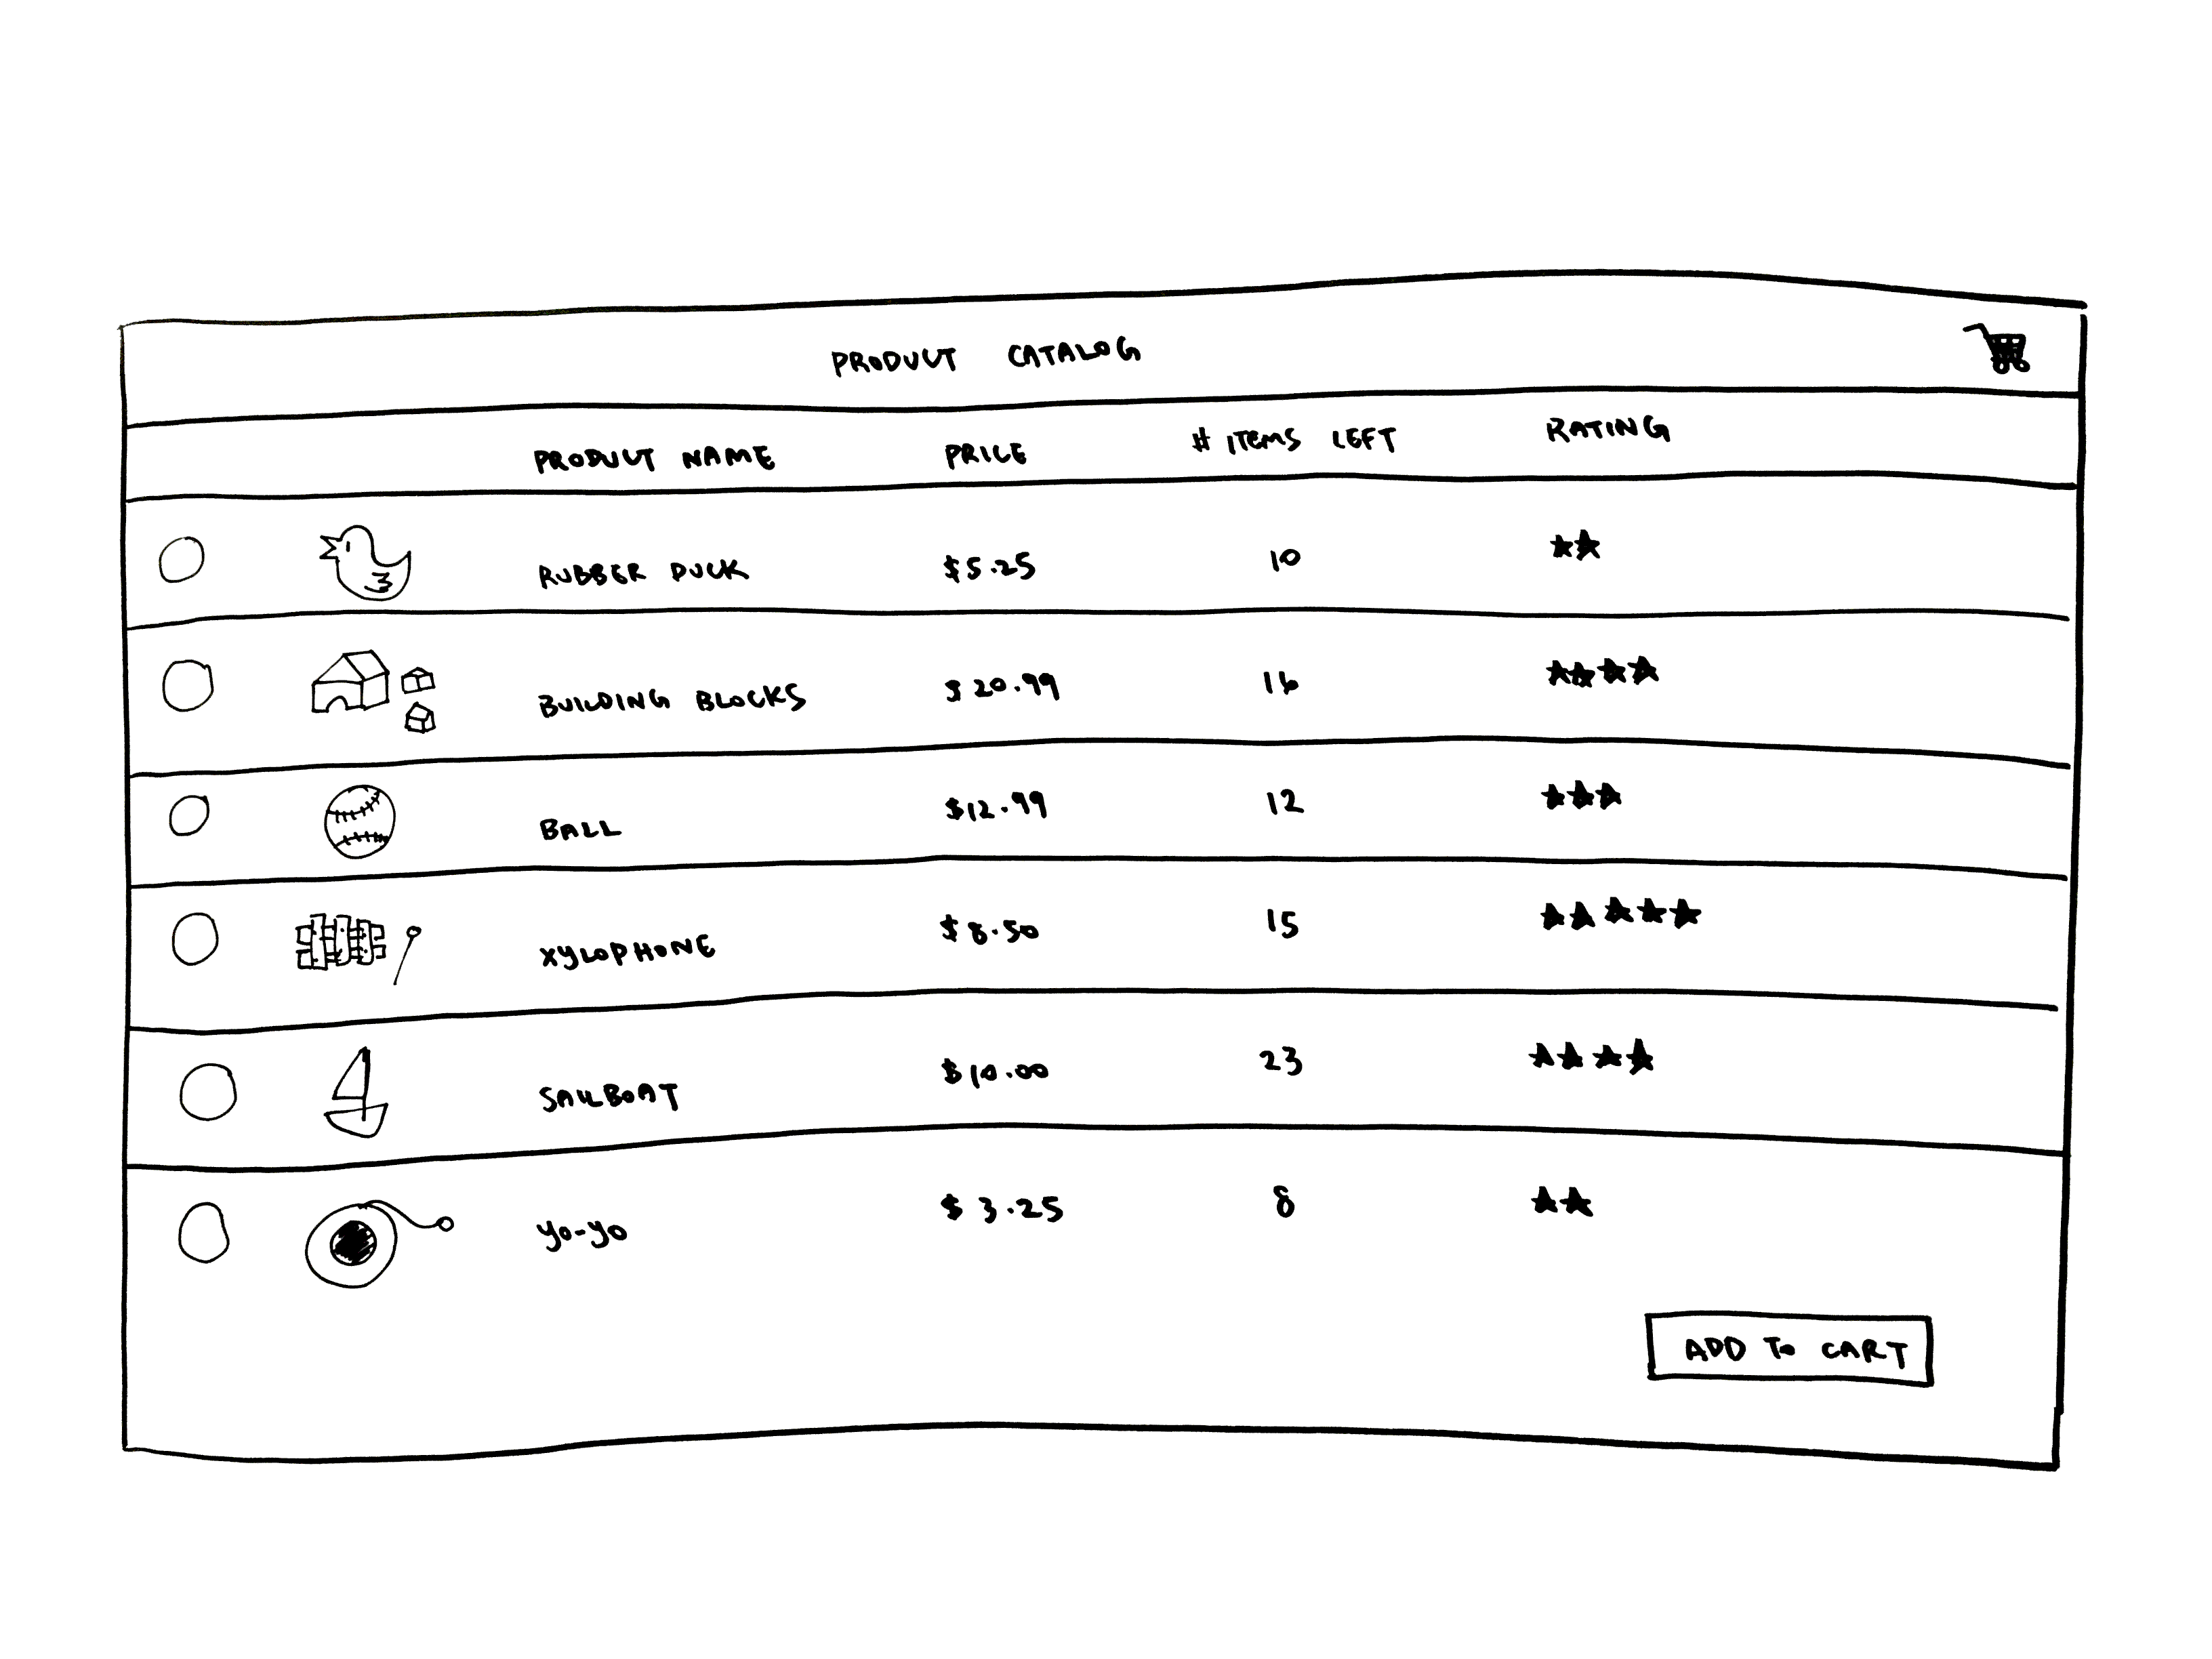 PRODUCT CATALOG
PRODUCT NAME PRICE # ITEMS LEFT RATING
RUBBER DUCK $5.25 10 ★★
BUILDING BLOCKS $20.99 16 ★★★★
BALL $12.99 12 ★★★
XYLOPHONE $8.50 15 ★★★★★
SAILBOAT $10.00 23 ★★★★
YO-YO $3.25 8 ★★
ADD TO CART